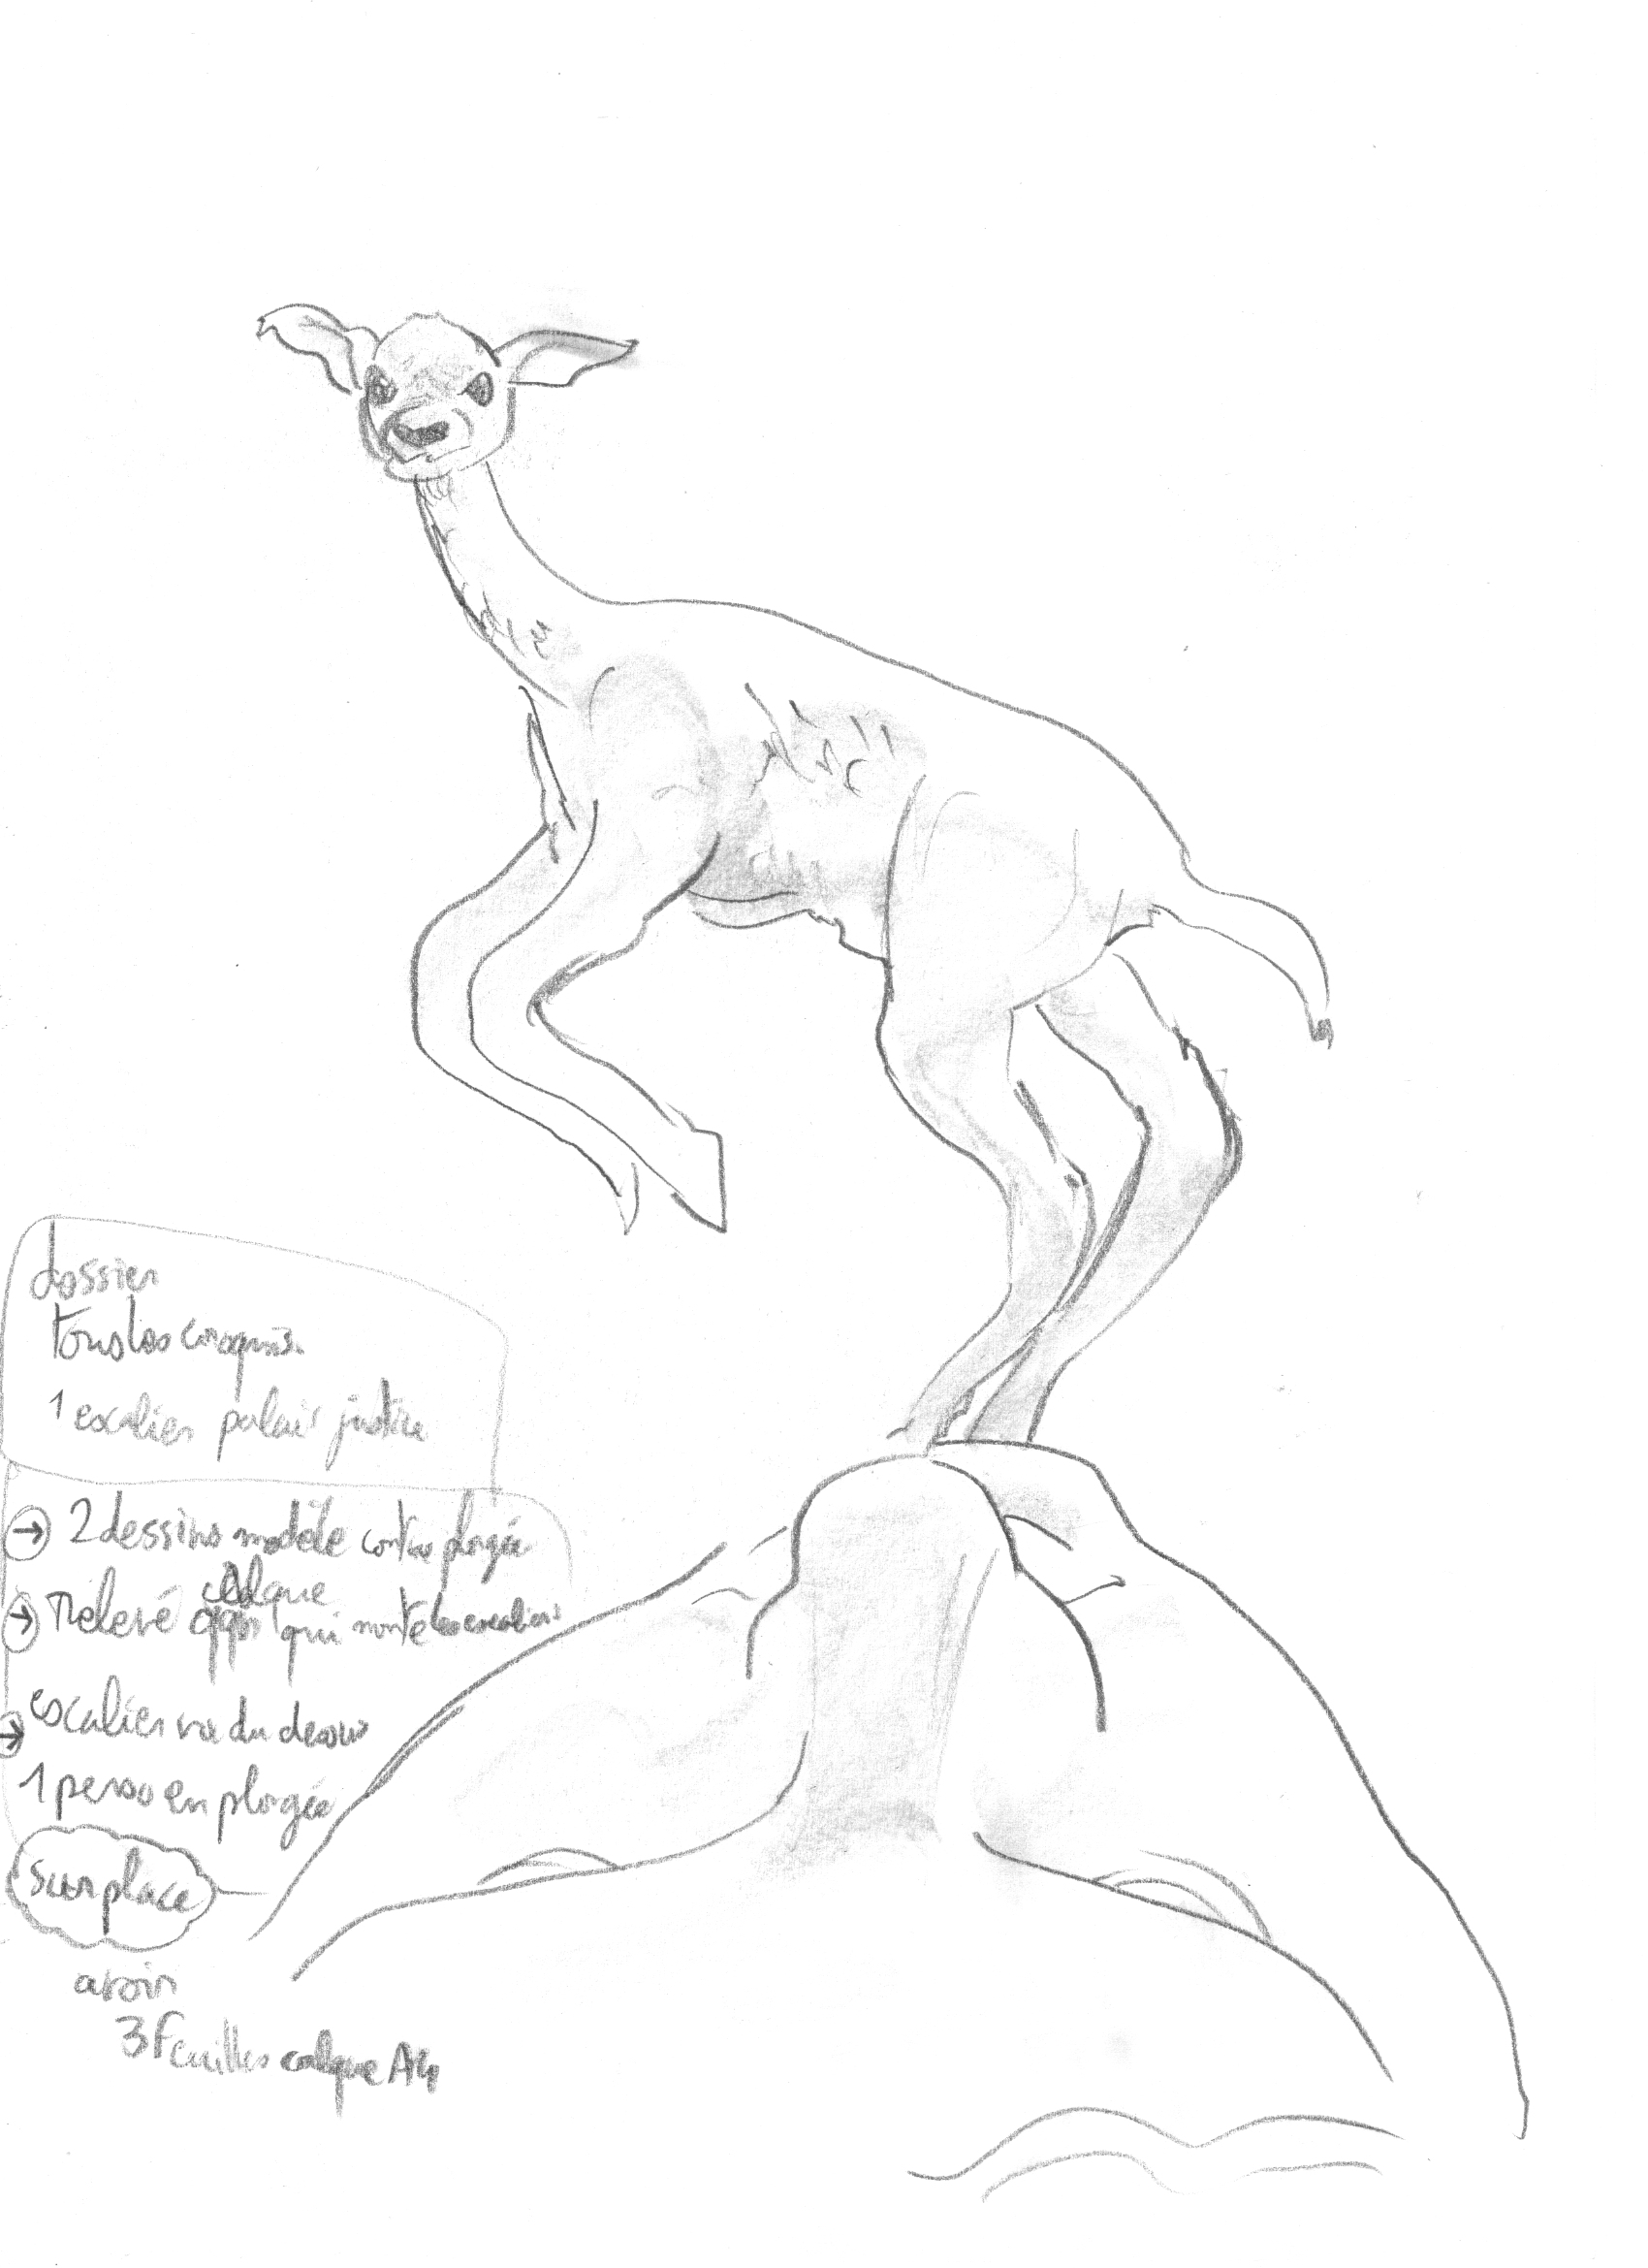 dossier
tous les croquis.
1 escalier palais justice
→ 2 dessins modèle contre plongée
calque
→ Relevé qqn qui monte les escaliers
→ escalier vu du dessus
1 perso en plongée
sur place
avoir
3 feuilles calque A4